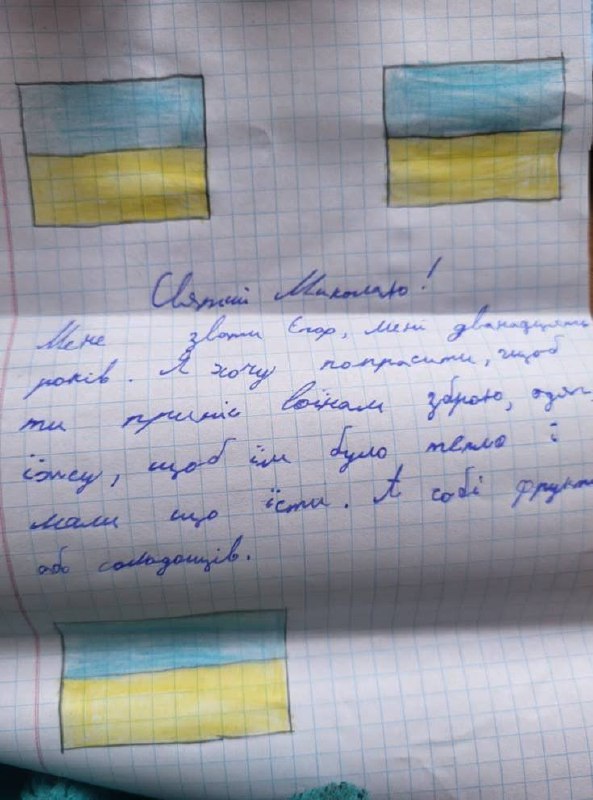 Святий Миколаю!
Мене звати Єгор, мені дванадцять
років. Я хочу попрасити, щоб
ти приніс воїнам зброю, одяг,
їжу, щоб їм було тепло і
мали що їсти. А собі фрукти
або солодощів.